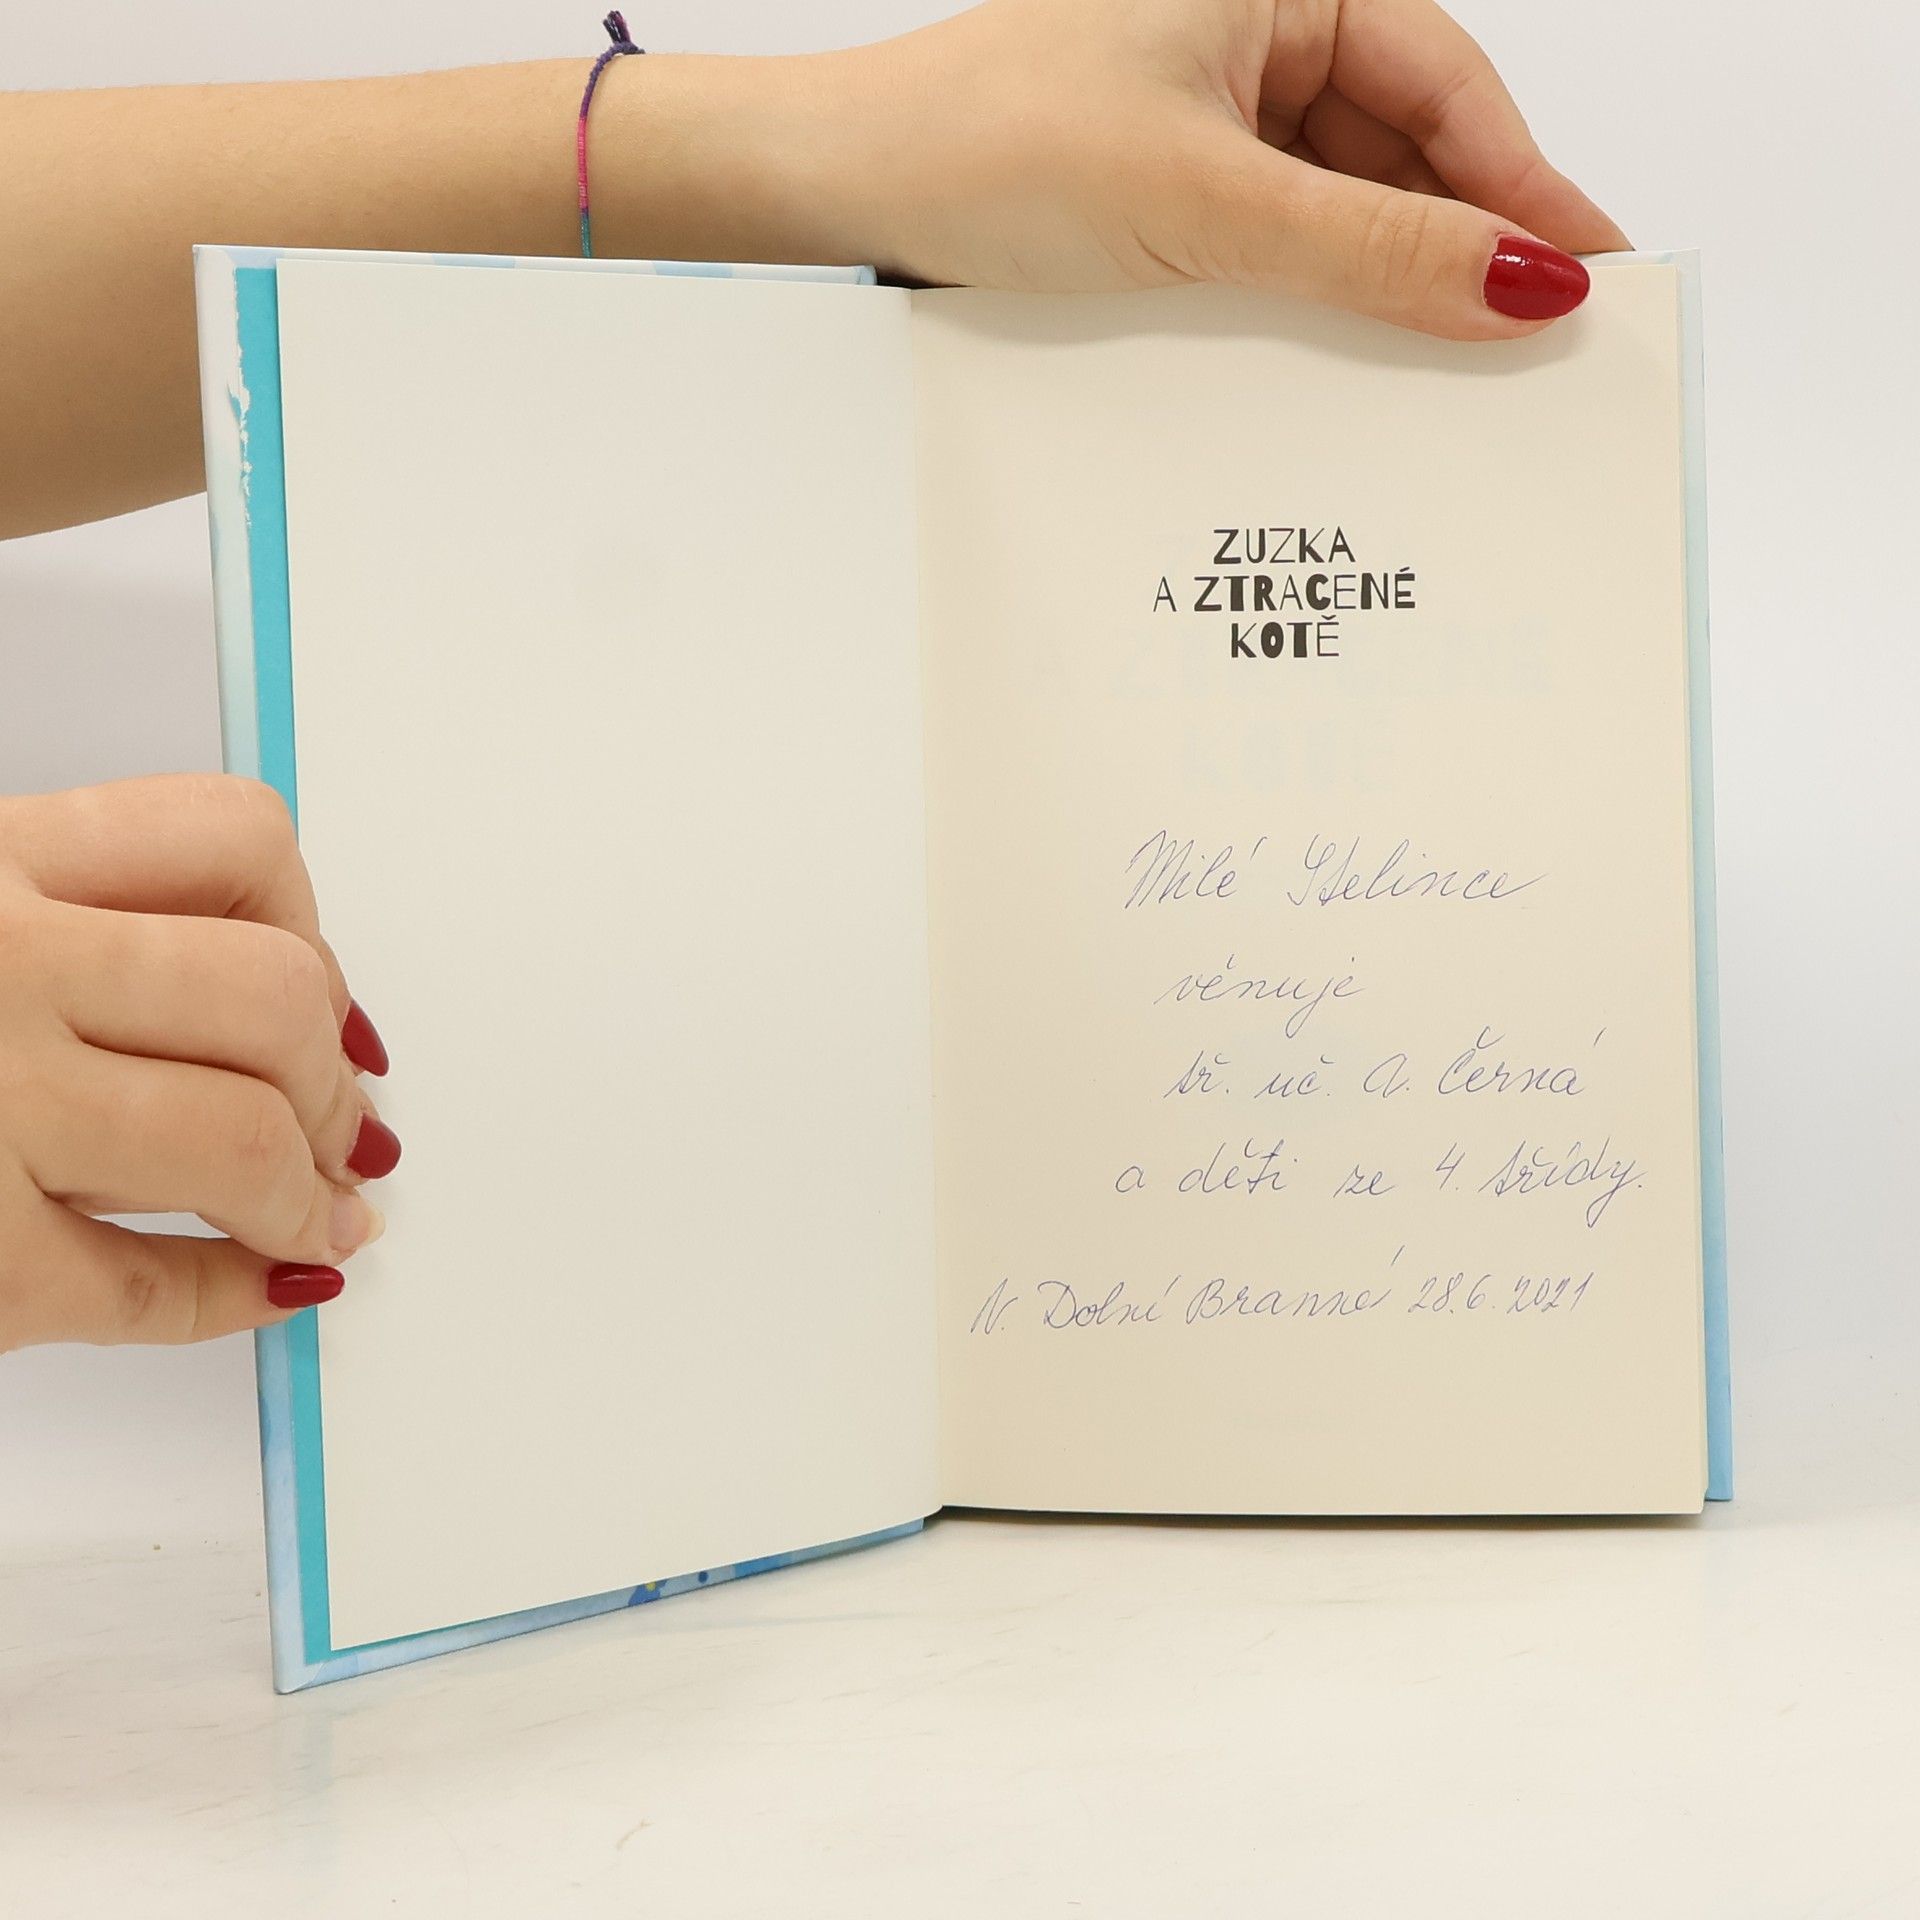 ZUZKA
A ZTRACENÉ
KOTĚ
Milé Stelince
věnuje
tř. uč. A. Černá
a děti ze 4. třídy.
V Dolní Branné 28.6.2021